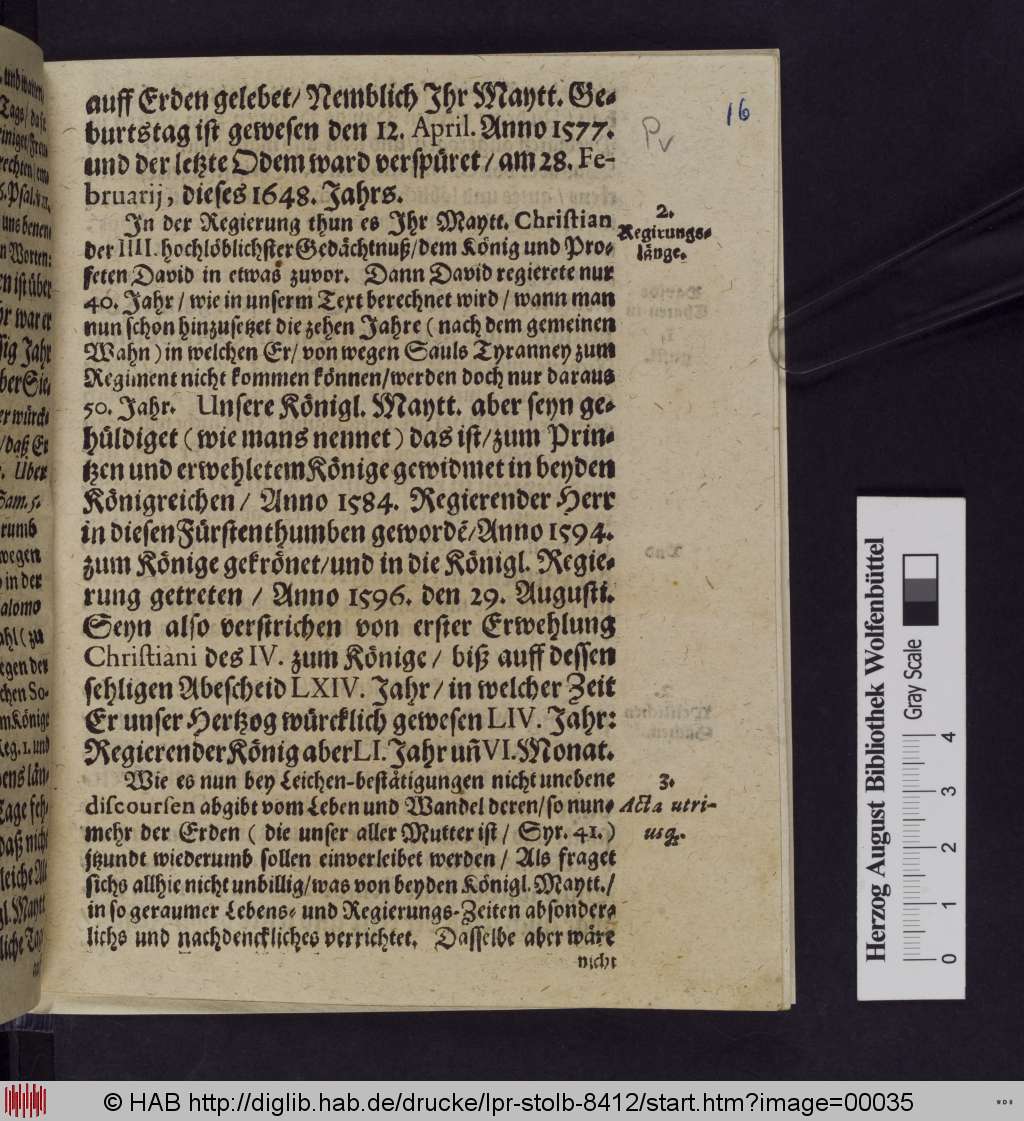 auff Erden gelebet/ Nemblich Ihr Maytt. Ge-
burtstag ist gewesen den 12. April. Anno 1577.
und der letzte Odem ward verspüret / am 28. Fe-
bruarij, dieses 1648. Jahrs.
In der Regierung thun es Ihr Maytt. Christian
der IIII. hochlöblichster Gedächtnuß/ dem König und Pro-
feten David in etwas zuvor. Dann David regierete nur
40. Jahr / wie in unserm Text berechnet wird / wann man
nun schon hinzusetzet die zehen Jahre ( nach dem gemeinen
Wahn ) in welchen Er/ von wegen Sauls Tyranney zum
Regiment nicht kommen können/werden doch nur daraus
50. Jahr. Unsere Königl. Maytt. aber seyn ge-
hüldiget ( wie mans nennet ) das ist/ zum Prin-
tzen und erwehletem Könige gewidmet in beyden
Königreichen / Anno 1584. Regierender Herr
in diesen Fürstenthumben gewordē/Anno 1594.
zum Könige gekrönet/und in die Königl. Regie-
rung getreten / Anno 1596. den 29. Augusti.
Seyn also verstrichen von erster Erwehlung
Christiani des IV. zum Könige / biß auff dessen
sehligen Abescheid LXIV. Jahr / in welcher Zeit
Er unser Hertzog würcklich gewesen LIV. Jahr:
Regierender König aber LI. Jahr uñ VI. Monat.
Wie es nun bey Leichen-bestätigungen nicht unebene
discoursen abgibt vom Leben und Wandel deren/ so nun-
mehr der Erden ( die unser aller Mutter ist / Syr. 41. )
itzundt wiederumb sollen einverleibet werden / Als fraget
sichs allhie nicht unbillig/was von beyden Königl. Maytt./
in so geraumer Lebens- und Regierungs-Zeiten absonder-
lichs und nachdenckliches verrichtet. Dasselbe aber wäre
nicht
2.
Regirungs-
länge.
3.
Acta utri-
usq;.
16
Pv
Herzog August Bibliothek Wolfenbüttel
Gray Scale
0 1 2 3 4
© HAB http://diglib.hab.de/drucke/lpr-stolb-8412/start.htm?image=00035